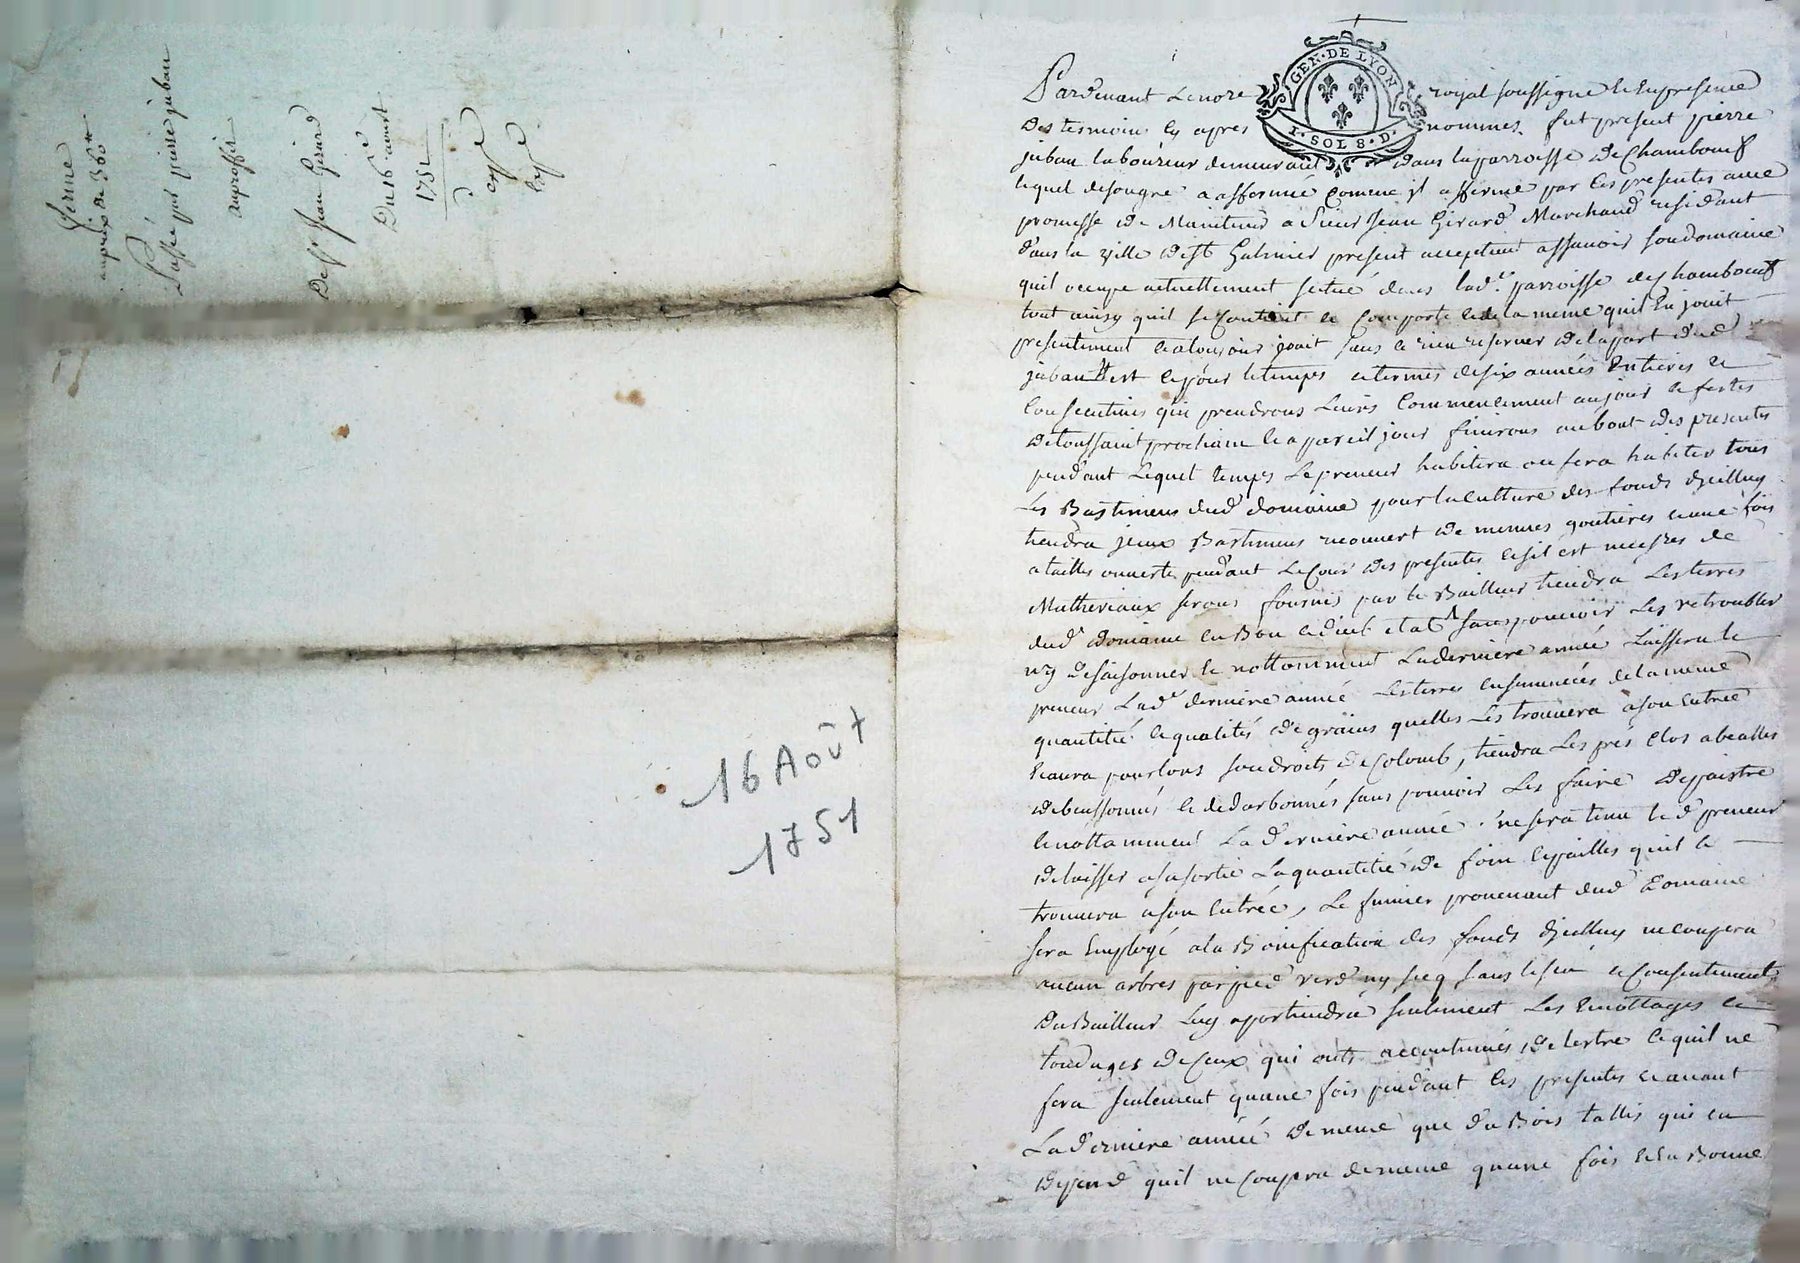 ferme
au prix de 360 ₶
Passée par pierre juban
au proffit
De Sr Jean Girard
Du 16e aoust
1751
16 Août
1751
GEN·DE LYON
I·SOL 8·D·
Pardevant Le no.re royal soussigné Et En presence
Des tesmoins Cy apres nommes fut present pierre
juban laboureur demeurant dans la parroisse De Chambœuf
lequel de son gré a affermé Comme jl afferme par Ces presentes avec
promesse de Maintenir a Sieur Jean Girard Marchand residant
dans la ville de St Galmier present acceptant assavoir son domaine
quil occupe actuellement scitué dans lad.e parroisse de Chambœuf
tout ainsy quil se Contient Et Comporte Et de la meme quil En jouit
presentement Et a toujours jouit sans Ce rien reserver De la part dud
juban Et pour le temps et terme de six années Entieres et
Consecutives qui prendrons Leurs Commencement au jour et festes
De toussaint prochain Et a pareil jour finirons au bout des presentes
pendant Lequel temps Le preneur habitera ou fera habiter tous
Les Bastimens dud domaine pour la Culture des fonds D'jcelluy
tiendra jceux Bastimens recouvert de menues goutieres et une fois
a tailles ouverte pendant Le Cour des presentes et sil est necess.res de
Matheriaux serons fournis par le Bailleur tiendra Les terres
dud.t domaine En Bon Et deub etat sans pouvoir Les retroubler
ny Desaisonner Et nottamment La derniere année Laissera le
preneur Lad.e derniere année Les terres Ensemencés de la meme
quantité Et qualités De grains quelles Les trouvera a son Entrée
Et aura pour lors son droits De Colomb, tiendra Les prés Clos abealles
debuissonnés Et dedarbonnés sans pouvoir Les faire Depaistre
Et nottamment La derniere année. sera tenu le d.t preneur
De laisser a sa sortie La quantitié De foin Et pailles quil le
trouvera a son Entrée, Le fumier provenant dud Domaine
sera Employé a la Bonification des fonds D'jcelluy ne Coupera
aucun arbres par pied verd ny secq sans le sceu et Consentement
Du Bailleur Luy apartiendra seulement Les Emottages Et
tondages De Ceux qui onts accoutumés De lestre Ce quil ne
fera seulement quune fois pendant Ces presentes et avant
La derniere année De meme que du Bois taillis qui en
Depend quil ne Coupera de meme quune fois Et En Bonne